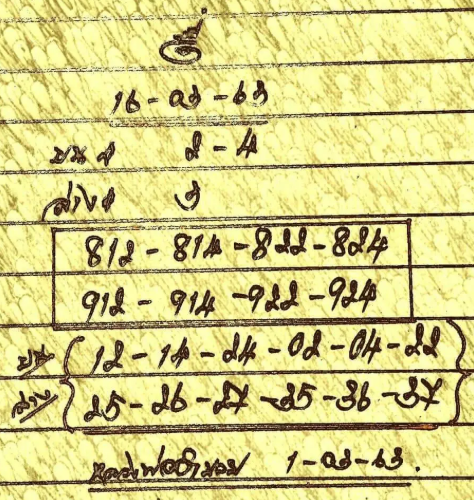 16-03-63
บน 2-4
ล่าง 3
812 - 814 - 822 - 824
912 - 914 - 922 - 924
บน (12 - 14 - 24 - 02 - 04 - 22)
ล่าง {25 - 26 - 27 - 35 - 36 - 37}
1-03-63.